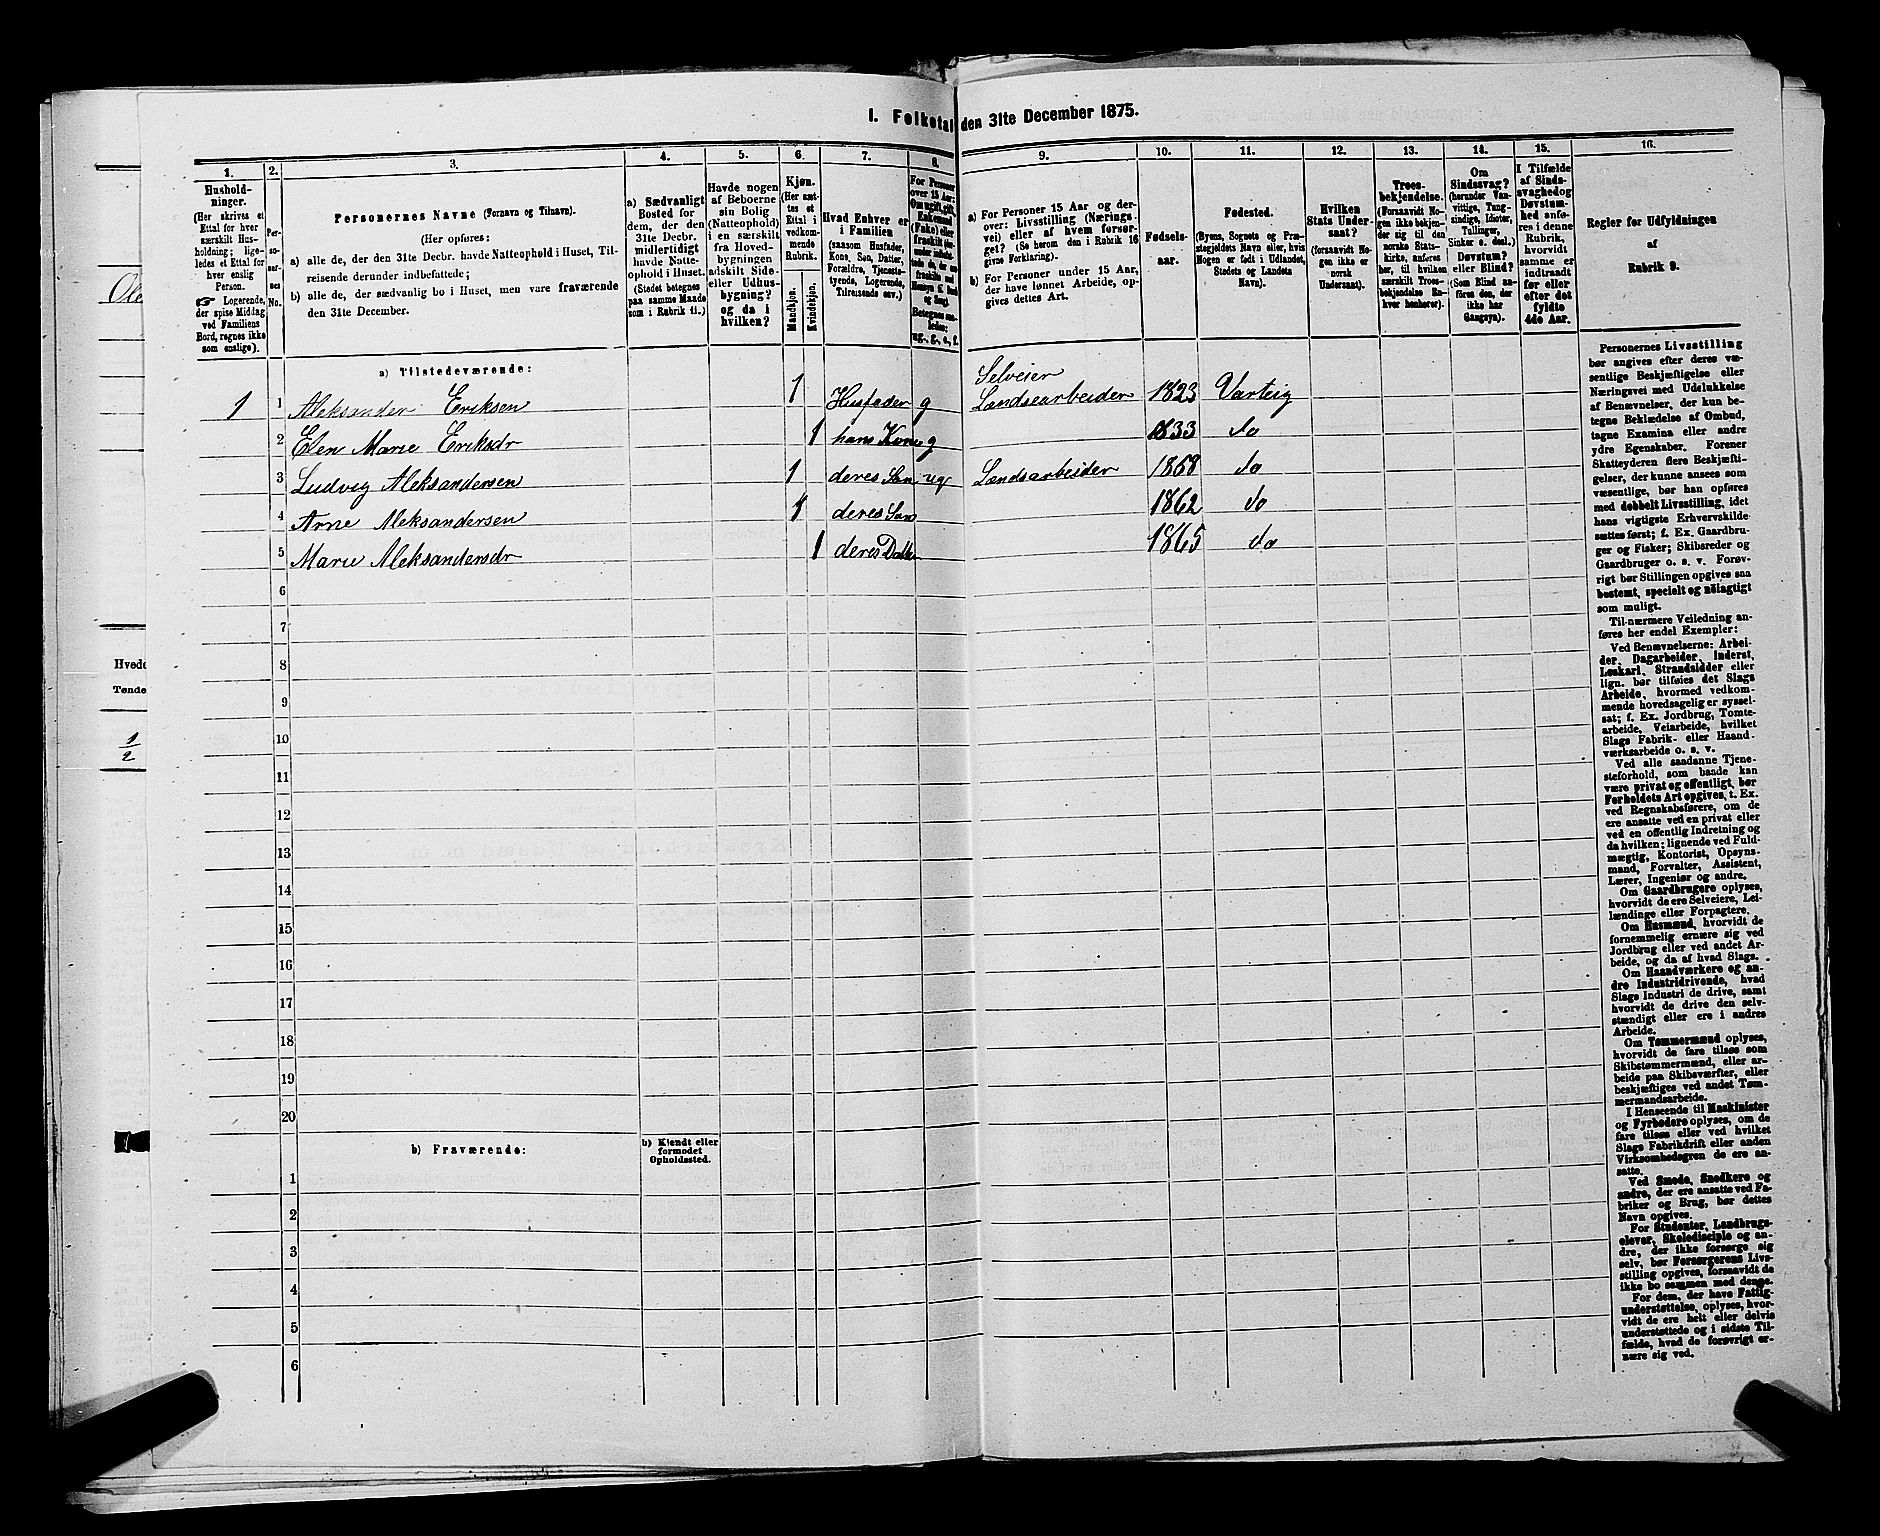 I. Folketal den 31te December 1875.
1.
2.
3.
4.
5.
6.
7.
8.
9.
10.
11.
12.
13.
14.
15.
16.
Hushold-
ninger.
(Her skrives et
Ettal for hver
særskilt Hus-
holdning; lige-
ledes et Ettal for
hver enslig
Person.
☞ Logerende,
der spise Middag
ved Familiens
Bord, regnes ikke
som enslige).
Per-
so-
ner-
nes
No.
Personernes Navne (Fornavn og Tilnavn).
(Her opføres:
a) alle de, der den 31te Decbr. havde Natteophold i Huset, Til-
reisende derunder indbefattede;
b) alle de, der sædvanlig bo i Huset, men vare fraværende
den 31te December.
a) Sædvanligt
Bosted for
dem, der den
31te Decbr.
midlertidigt
havde Natte-
ophold i Huset.
(Stedet betegnes
paa samme Maade
som i Rubrik 11.)
Havde nogen
af Beboerne
sin Bolig
(Natteophold)
i en særskilt
fra Hoved-
bygningen
adskilt Side-
eller Udhus-
bygning?
og da i
hvilken?
Kjøn.
(Her sæt-
tes et
Ettal i
vedkom-
mende
Rubrik.
Mandkjøn.
Kvindekjøn.
Hvad Enhver er
i Familien
(saasom Husfader,
Kone, Søn, Datter,
Forældre, Tjeneste-
tyende, Logerende,
Tilreisende osv.)
For Personer
over 15 Aar:
Om ugift, gift,
Enkemand
(Enke) eller
fraskilt
Betegnes saa-
ledes:
ug., g., e., f.
a) For Personer 15 Aar og der-
over: Livsstilling (Nærings-
vei) eller af hvem forsør-
get? (Se herom den i Rubrik 16
givne Forklaring).
b) For Personer under 15 Aar,
der have lønnet Arbeide, op-
gives dettes Art.
Fødsels-
aar.
Fødested.
(Byens, Sognets og Præ-
stegjeldets Navn eller, hvis
Nogen er født i Udlandet,
Stedets og Landets
Navn).
Hvilken
Stats Under-
saat?
(forsaavidt No-
gen ikke er
norsk
Undersaat).
Troes-
bekjendelse.
(Forsaavidt No-
gen ikke bekjen-
der sig til den
norske Stats-
kirke, anføres
her, til hvilken
særskilt Troes-
bekjendelse En-
hver henhører).
Om
Sindssvag?
(herunder Van-
vittige, Tung-
sindige, Idioter,
Tullinger,
Sinker o. desl.)
Døvstum?
eller Blind?
(Som Blind an-
føres den, der
ikke har
Gangsyn).
I Tilfælde
af Sinds-
svaghed og
Døvstum-
hed anfø-
res i denne
Rubrik,
hvorvidt
samme er
indtraadt
før eller
efter det
fyldte
4de Aar.
Regler for Udfyldningen
af
Rubrik 9.
a) Tilstedeværende:
1 1 Aleksander Eriksen 1 Husfader g Selveier
Landsearbeider 1823 Varteig
2 Elen Marie Eriksdr 1 hans Kone g 1833 do
3 Ludvig Aleksandersen 1 deres Søn ug Landsarbeider 1858 do
4 Arne Aleksandersen 1 deres Søn 1862 do
5 Marie Aleksandersdr 1 deres Datter 1865 do
6
7
8
9
10
11
12
13
14
15
16
17
18
19
20
b) Fraværende:
b) Kjendt eller
formodet
Opholdssted.
1
2
3
4
5
6
Personernes Livsstilling
bør angives efter deres væ-
sentlige Beskjæftigelse eller
Næringsvei med Udelukkelse
af Benævnelser, der kun be-
tegne Beklædelse af Ombud,
tagne Examina eller andre
ydre Egenskaber. Forener
Skatteyderen flere Beskjæfti-
gelser, der kunne ansees som
væsentlige, bør han opføres
med dobbelt Livsstilling, idet
hans vigtigste Erhvervskilde
sættes først; f. Ex. Gaardbru-
ger og Fisker; Skibsreder og
Gaardbruger o. s. v. Forøv-
rigt bør Stillingen opgives saa
bestemt, specielt og nøiagtigt
som muligt.
Til nærmere Veiledning an-
føres her endel Exempler:
Ved Benævnelserne: Arbei-
der, Dagarbeider, Inderst,
Løskarl, Strandsidder eller
lign. bør tilføies det Slags
Arbeide, hvormed vedkom-
mende hovedsagelig er syssel-
sat; f. Ex. Jordbrug, Tomte-
arbeide, Veiarbeide, hvilket
Slags Fabrik- eller Haand-
værksarbeide o. s. v.
Ved alle saadanne Tjene-
steforhold, som baade kan
være privat og offentligt, bør
Forholdets Art opgives, t. Ex.
ved Regnskabsførere, om de
ere ansatte ved en privat eller
ved en offentlig Indretning og
da hvilken; lignende ved Fuld-
mægtig, Kontorist, Opsyns-
mand, Forvalter, Assistent,
Lærer, Ingeniør og andre.
Om Gaardbrugere oplyses,
hvorvidt de ere Selveiere, Lei-
lændinge eller Forpagtere.
Om Husmænd, hvorvidt de
fornemmelig ernære sig ved
Jordbrug eller ved andet Ar-
beide, og da af hvad Slags.
Om Haandværkere og an-
dre Industridrivende, hvad
Slags Industri de drive, samt
hvorvidt de drive den selv-
stændigt eller ere i andres
Arbeide.
Om Tømmermænd oplyses,
hvorvidt de fare tilsøs som
Skibstømmermænd, eller ar-
beide paa Skibsværfter, eller
beskjæftiges ved andet Tøm-
mermandsarbeide.
I Henseende til Maskinister
og Fyrbødere oplyses, om de
fare tilsøs eller ved hvilket
Slags Fabrikdrift eller anden
Virksomhedsgren de ere an-
satte.
Ved Smede, Snedkere og
andre, der ere ansatte ved Fa-
briker og Brug, bør dettes
Navn opgives.
For Studenter, Landbrugs-
elever, Skoledisciple og an-
dre, der ikke forsørge sig
selv, bør Forsørgerens Livs-
stilling opgives, forsaavidt de
ikke bo sammen med denne.
For dem, der have Fattig-
understøttelse, oplyses, hvor-
vidt de ere helt eller delvis
understøttede og i sidste Til-
fælde, hvad de forøvrigt er-
nære sig ved.
Ole
Hvede
Tønde
1/2